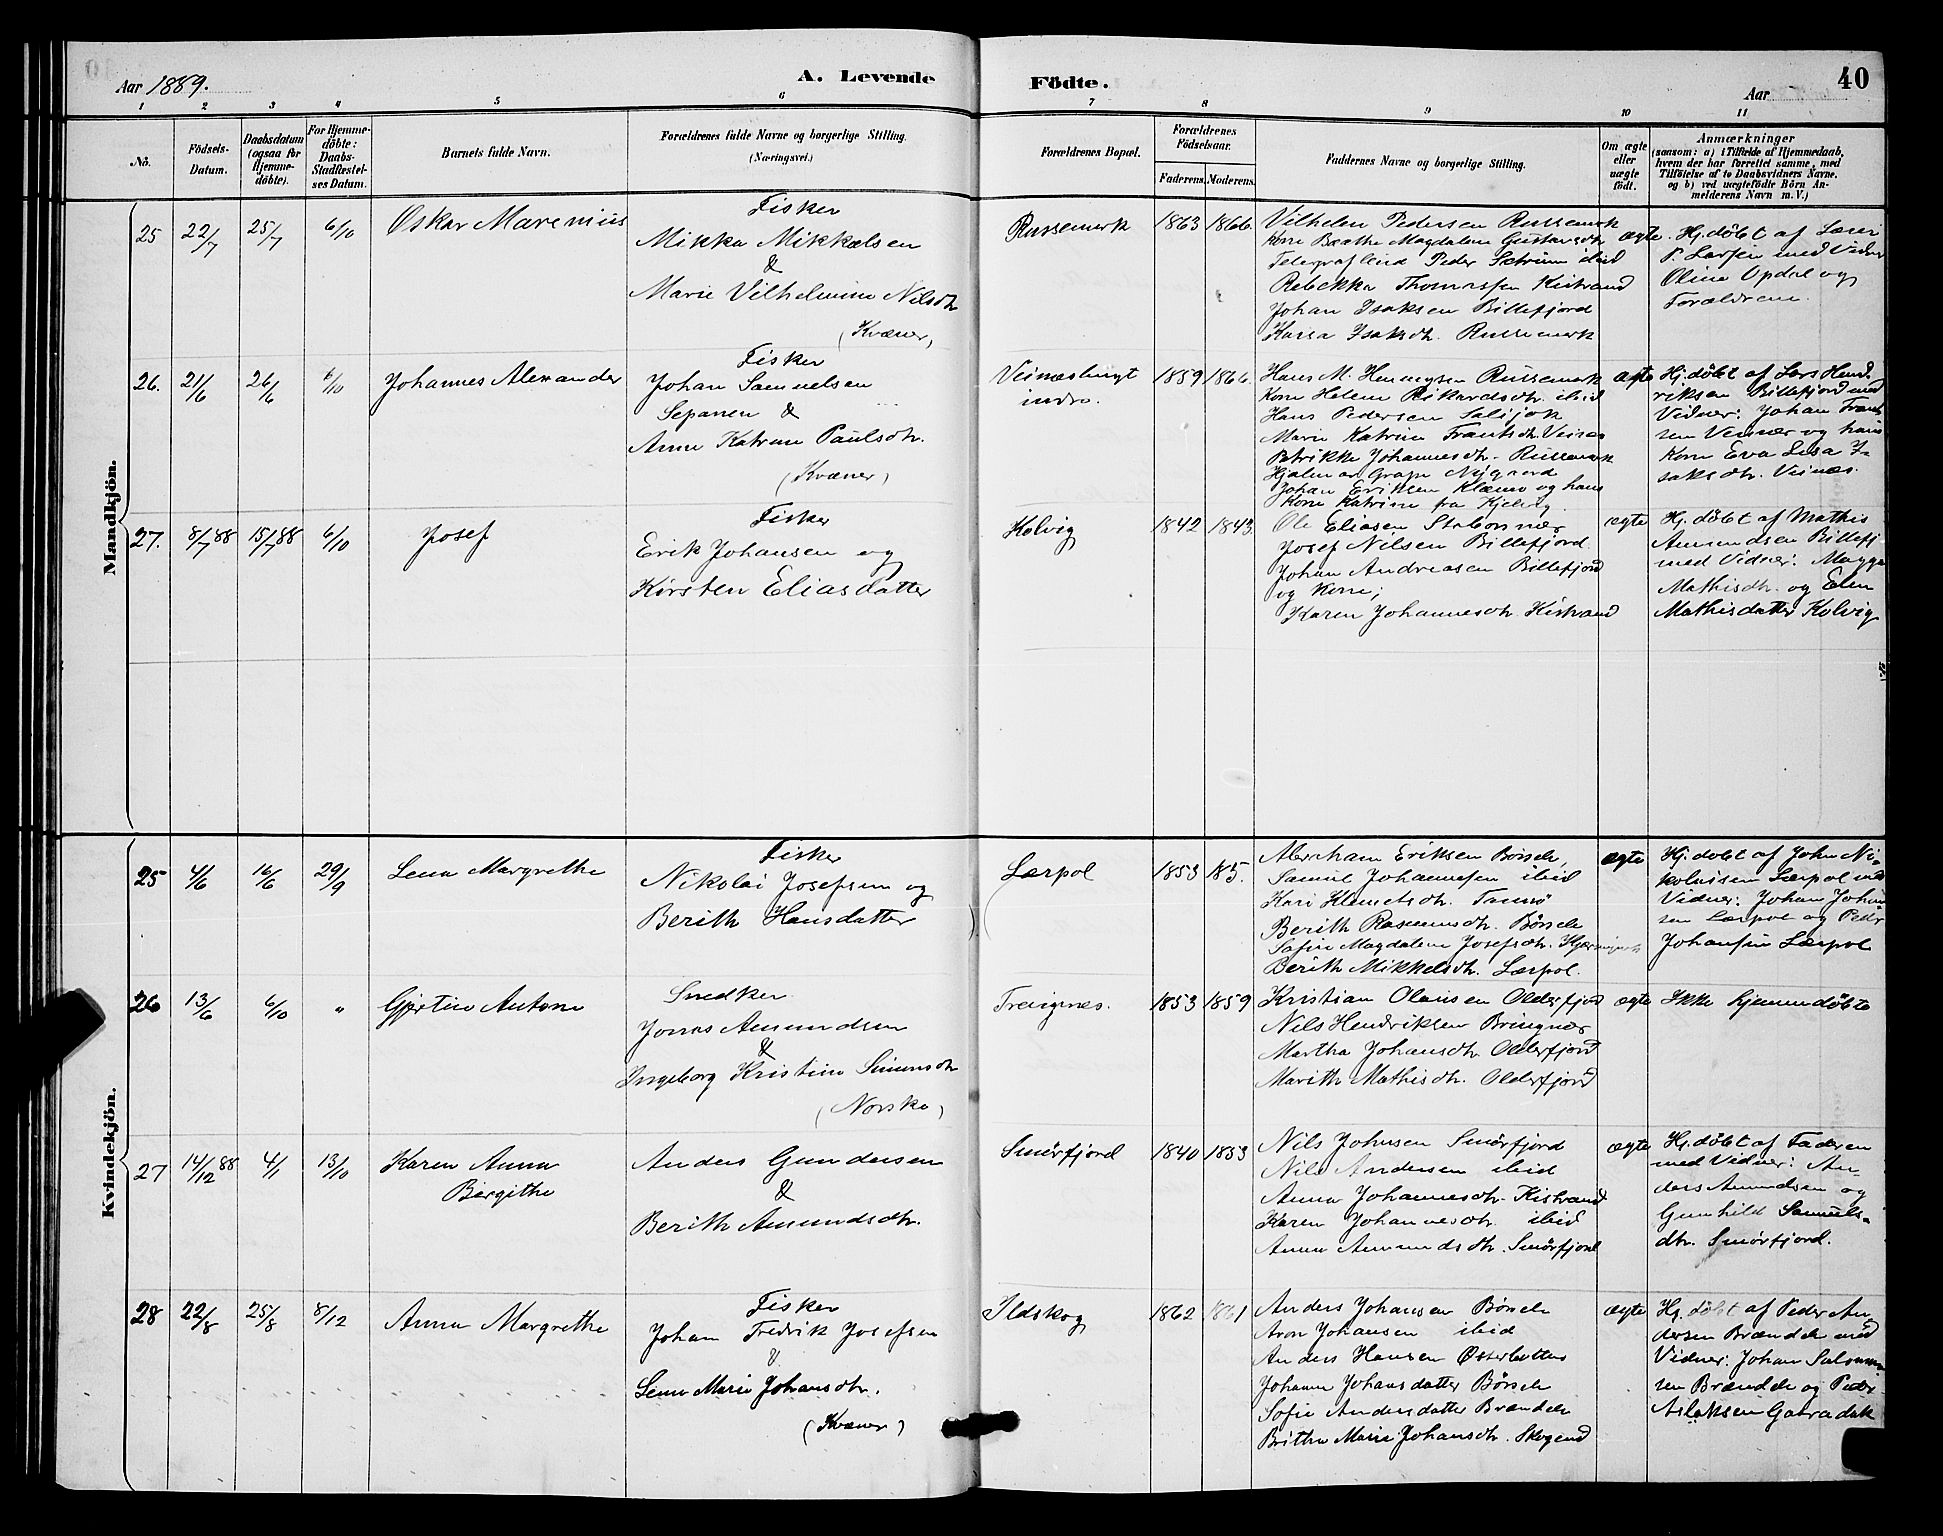 Aar 1889.
A. Levende Födte.
40
Aar
1 2 3 4 5 6 7 8 9 10 11
No.
Födsels-Datum.
Daabsdatum (ogsaa for Hjemme-döbte).
For Hjemme-döbte: Daabs-Stadfæstel-ses Datum.
Barnets fulde Navn.
Forældrenes fulde Navne og borgerlige Stilling.
(Næringsvei.)
Forældrenes Bopæl.
Forældrenes Födselsaar.
Faderens. Moderens.
Faddernes Navne og borgerlige Stilling.
Om ægte eller uægte födt.
Anmærkninger
(saasom: a) i Tilfælde af Hjemmedaab,
hvem der har forrettet samme, med
Tilföielse af to Daabsvidners Navne,
og b) ved uægtefödte Börn An-
melderens Navn m. V.)
Mandkjön.
25 22/7 25/7 6/10 Oskar Marenius
Fisker
Mikka Mikkelsen
&
Marie Vilhelmine Nilsdtr
(Kvæner)
Russemark 1863 1866.
Vilhelm Pedersen Russemark
Kone Beathe Magdalene Gustavsdtr
Peder Sætrum ibid
Rebekka Thomassen Kistrand
Johan Isaksen Billefjord
Kaisa Isaksdtr. Russemark
ægte.
Hj. döbt af Lærer
P. Larsen med Vidner
Oline Opdal og
Forældrene.
26. 21/6 26/6 6/10 Johannes Alexander
Fisker
Johan Samuelsen
Sepanen &
Anna Katrine Paulsdtr.
(Kvæner)
Veinesbugt
indre.
1859 1866.
Hans M. Henningsen Russemark
Kone Helene Rikardsdtr. ibid
Hans Pedersen Saljok
Marie Katrine Frantsdtr. Veines
Petrikke Johannesdtr. Russemark
Hjalmar Grape Nygaard
Johan Eriksen Klæmo og hans
Kone Katrine fra Kjelvig
ægte
Hj. döbt af Lars Hend-
riksen Billefjord med
Vidner: Johan Frant-
sen Veines og hans
Kone Eva Lisa I-
saksdtr. Veines.
27. 8/7 88 15/7 88 6/10 Josef
Fisker
Erik Johansen og
Kirsten Eliasdatter
Kolvig 1842 1843.
Ole Eliasen Stabomnær
Josef Nilsen Billefjord
Johan Andreasen Billefjord
og Kone;
Karen Johannesdtr. Kistrand
ægte
Hj. döbt af Mathis
Amundsen Billefj
med Vidner: Magga
Mathisdtr. og Elen
Mathisdatter Kolvig
Kvindekjön.
25 4/6 16/6 29/9 Lena Margrethe
Fisker
Nikolai Josefsen og
Berith Hansdatter
Lærpol 1853 185.
Abraham Eriksen Börsele,
Samuel Johannesen ibid
Kari Klemetsdtr. Tamsö
Berith Rasmusdtr. Börsele
Sofie Magdalene Josefsdtr.
Berith Mikkelsdtr. Lærpol.
ægte
Hj. döbt af John Ni-
kolaisen Lærpol med
Vidner: Johan Johan-
sen Lærpol og Peder
Johansen Lærpol
26 13/6 6/10 " Gjertine Antone
Snedker
Jonas Amundsen
&
Ingeborg Kristine Simonsdtr
(Norske)
Trangnes. 1853 1859
Kristian Olausen Olderfjord
Nils Hendriksen Bringnær
Martha Johansdtr. Olderfjord
Marith Mathisdtr. Olderfjord
ægte
Ikke hjemmedöbte
27 14/12 88 4/1 13/10 Karen Anna
Birgithe
Anders Gundersen
&
Berith Amundsdtr.
Smörfjord 1840 1853
Nils Johnsen Smörfjord
Nils Andersen ibid
Anna Johannesdtr. Kistrand
Karen Johannesdtr. ibid
Anna Amundsdtr. Smörfjord
ægte
Hj. döbt af Faderen
med Vidner: An-
ders Amundsen og
Gunhild Samuels-
dtr. Smörfjord.
28 22/8 25/8 8/12 Anna Margrethe
Fisker
Johan Fredrik Josefsen
&
Lena Marie Johansdtr.
(Kvæner)
Ildskog 1862 1861
Anders Johansen Börsele
Aron Johansen ibid
Anders Hansen Österbotten
Johanna Johansdatter Börsele
Sofie Andersdatter Brændele
Britha Maria Johansdtr. Skogend
ægte
Hj. döbt af Peder An-
dersen Brændele med
Vidner: Johan Salomon-
sen Brændele og Peder
Aslaksen Gairadak